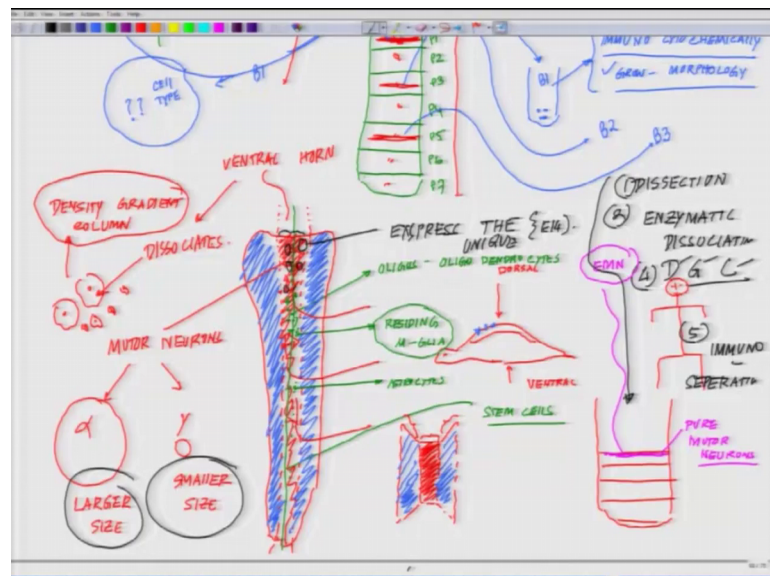 P1
P2
P3
P4
P5
P6
P7
B1
IMMUNO CYTOCHEMICALLY
✓ GROW - MORPHOLOGY
B1
B2
B3
?? CELL
TYPE
VENTRAL HORN
DENSITY GRADIENT
COLUMN
DISSOCIATES.
MOTOR NEURONS
α
γ
LARGER
SIZE
SMALLER
SIZE
EXPRESS THE {E14}.
UNIQUE
OLIGOS - OLIGO DENDROCYTES
DORSAL
RESIDING
M-GLIA
VENTRAL
ASTROCYTES
STEM CELLS
① DISSECTION
② ENZYMATIC
DISSOCIATION
EMN
④ D G C
⑤
IMMUNO
SEPERATIO
PURE
MOTOR
NEURONS